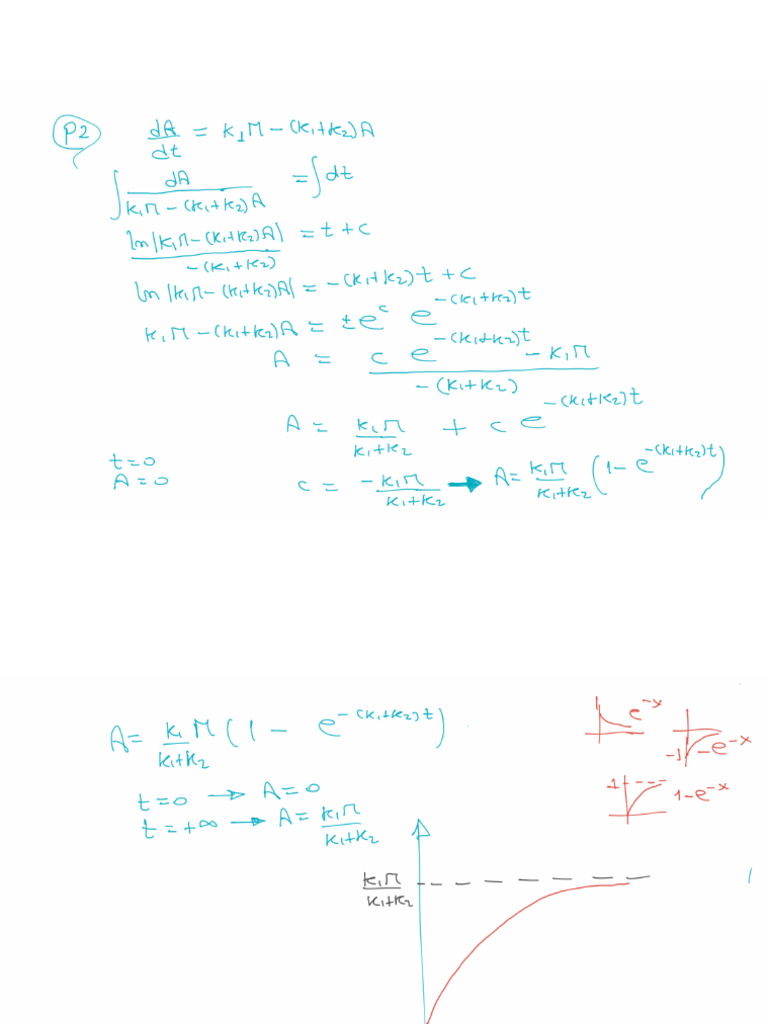 P2 dA/dt = k₁M - (k₁+k₂)A
∫ dA/(k₁M - (k₁+k₂)A) = ∫dt
ln|k₁M - (k₁+k₂)A|/-(k₁+k₂) = t + c
ln|k₁M - (k₁+k₂)A| = -(k₁+k₂)t + c
k₁M - (k₁+k₂)A = ±e^c e^-(k₁+k₂)t
A = (c e^-(k₁+k₂)t - k₁M)/-(k₁+k₂)
A = k₁M/(k₁+k₂) + c e^-(k₁+k₂)t
t=0
A=0
c = -k₁M/(k₁+k₂) → A = k₁M/(k₁+k₂) (1 - e^-(k₁+k₂)t)
A = k₁M/(k₁+k₂) (1 - e^-(k₁+k₂)t)
e^-x
-1 -e^-x
1 1-e^-x
t=0 → A=0
t=+∞ → A = k₁M/(k₁+k₂)
k₁M/(k₁+k₂)